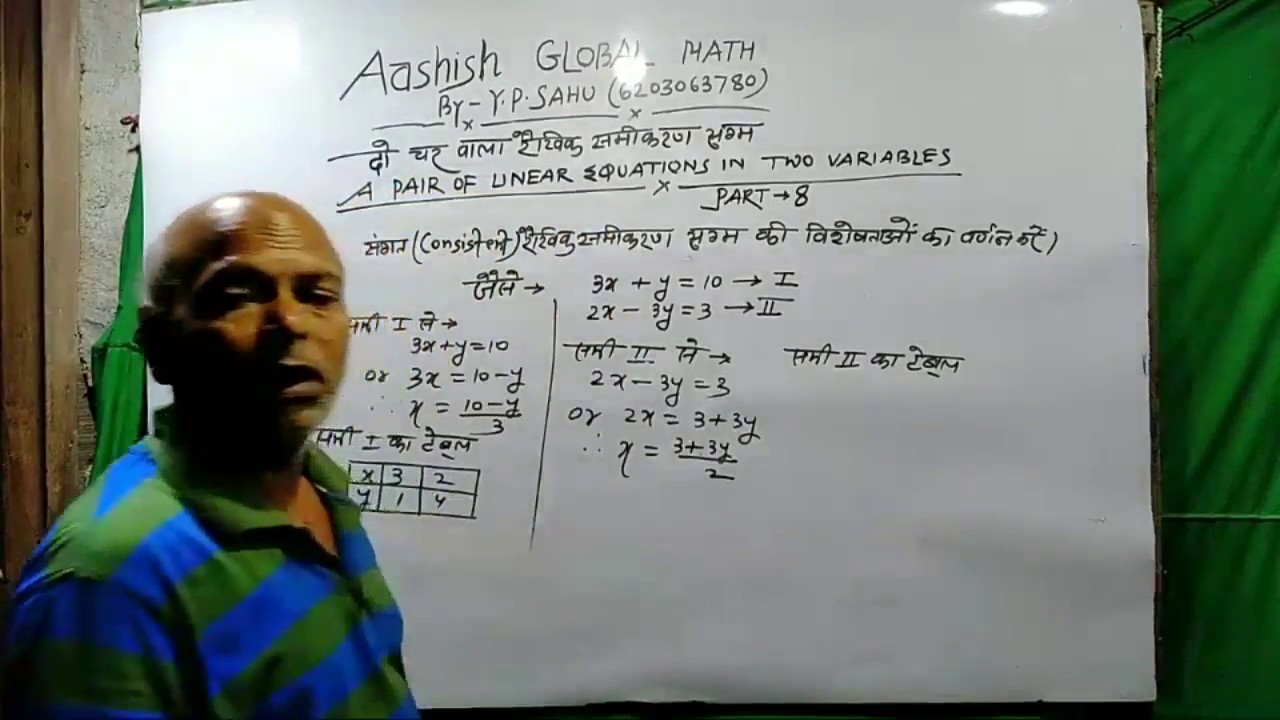 Aashish GLOBAL MATH
By - Y.P. SAHU (6203063780)
दो चर वाला रैखिक समीकरण युग्म
A PAIR OF LINEAR EQUATIONS IN TWO VARIABLES
PART → 8
संगत (Consistent) रैखिक समीकरण युग्म की विशेषताओं का वर्णन करें।
जैसे → 3x + y = 10 → I
2x - 3y = 3 → II
समी I से →
3x + y = 10
or 3x = 10 - y
∴ x = (10 - y)/3
समी I का टेबुल
x 3 2
y 1 4
समी II से →
2x - 3y = 3
or 2x = 3 + 3y
∴ x = (3 + 3y)/2
समी II का टेबुल